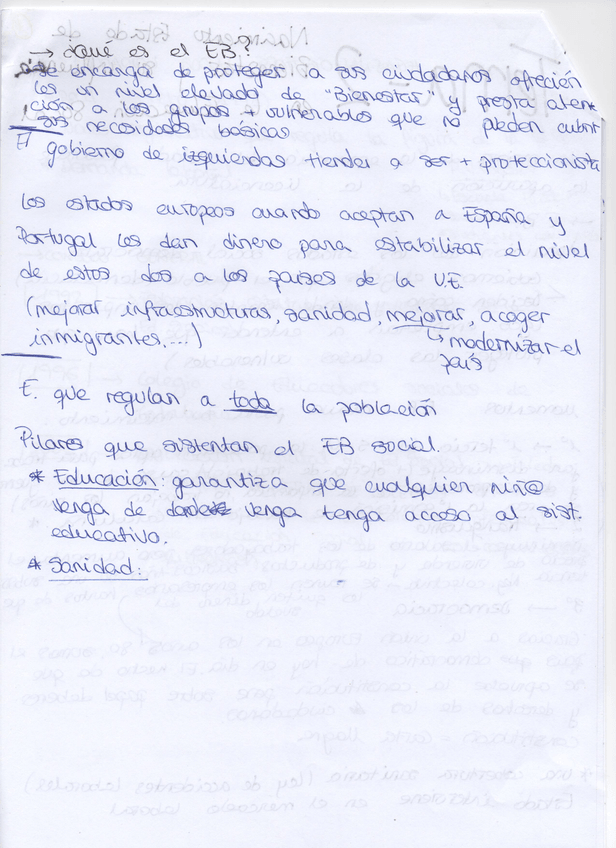 → ¿Qué es el EB?
se encarga de proteger a sus ciudadanos ofrecién
les un nivel elevado de "Bienestar" y presta aten
ción a los grupos + vulnerables que no pueden cubrir
sus necesidades básicas
El gobierno de izquierdas tiende a ser + proteccionista
Los estados europeos cuando aceptan a España y
Portugal les dan dinero para estabilizar el nivel
de estos dos a los países de la U.E.
(mejorar infraestructuras, sanidad, mejorar, acoger
inmigrantes, ...)
↳ modernizar el
país
E. que regulan a toda la población
Pilares que sistentan el EB social.
* Educación: garantiza que cualquier niñ@
venga de donde venga tenga acceso al sist.
educativo.
* Sanidad: